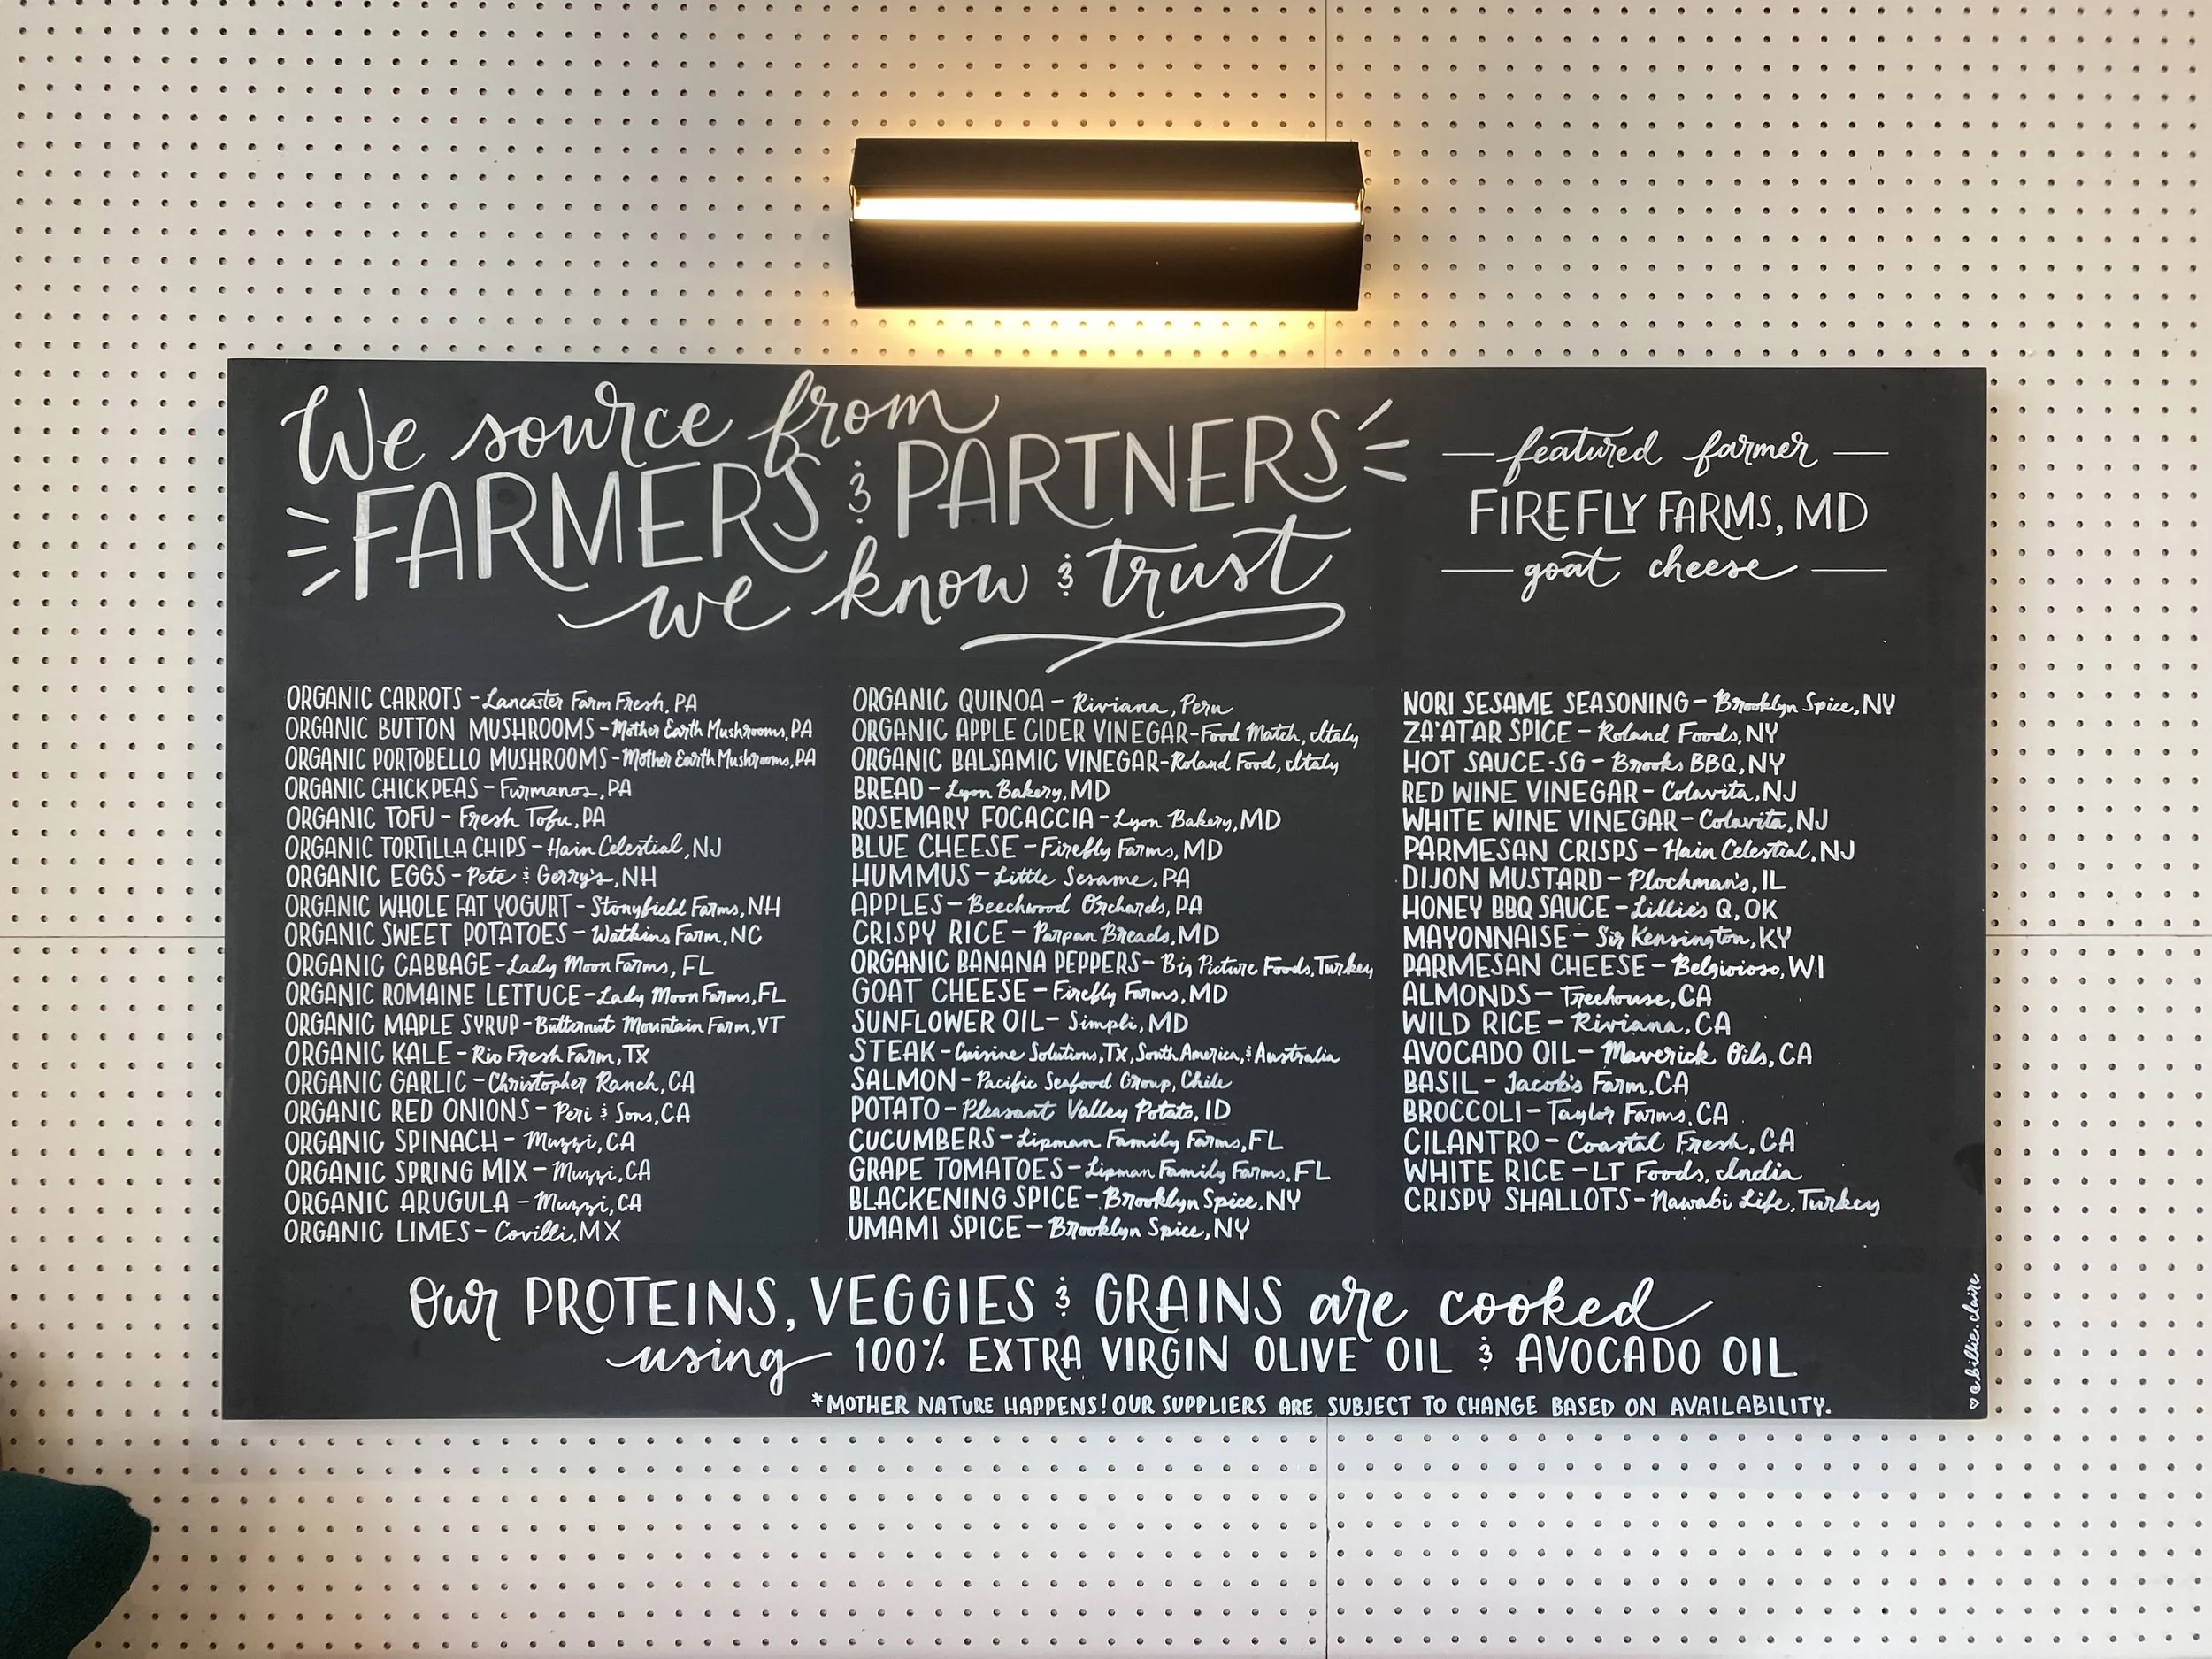 We source from
FARMERS & PARTNERS
we know & trust
featured farmer
FIREFLY FARMS, MD
goat cheese
ORGANIC CARROTS - Lancaster Farm Fresh, PA
ORGANIC BUTTON MUSHROOMS - Mother Earth Mushrooms, PA
ORGANIC PORTOBELLO MUSHROOMS - Mother Earth Mushrooms, PA
ORGANIC CHICKPEAS - Furmanos, PA
ORGANIC TOFU - Fresh Tofu, PA
ORGANIC TORTILLA CHIPS - Hain Celestial, NJ
ORGANIC EGGS - Pete & Gerry's, NH
ORGANIC WHOLE FAT YOGURT - Stonyfield Farms, NH
ORGANIC SWEET POTATOES - Watkins Farm, NC
ORGANIC CABBAGE - Lady Moon Farms, FL
ORGANIC ROMAINE LETTUCE - Lady Moon Farms, FL
ORGANIC MAPLE SYRUP - Butternut Mountain Farm, VT
ORGANIC KALE - Rio Fresh Farm, TX
ORGANIC GARLIC - Christopher Ranch, CA
ORGANIC RED ONIONS - Peri & Sons, CA
ORGANIC SPINACH - Muzzi, CA
ORGANIC SPRING MIX - Muzzi, CA
ORGANIC ARUGULA - Muzzi, CA
ORGANIC LIMES - Covilli, MX
ORGANIC QUINOA - Riviana, Peru
ORGANIC APPLE CIDER VINEGAR - Food Match, Italy
ORGANIC BALSAMIC VINEGAR - Roland Food, Italy
BREAD - Lyon Bakery, MD
ROSEMARY FOCACCIA - Lyon Bakery, MD
BLUE CHEESE - Firefly Farms, MD
HUMMUS - Little Sesame, PA
APPLES - Beechwood Orchards, PA
CRISPY RICE - Parpan Breads, MD
ORGANIC BANANA PEPPERS - Big Picture Foods, Turkey
GOAT CHEESE - Firefly Farms, MD
SUNFLOWER OIL - Simpli, MD
STEAK - Cuisine Solutions, TX, South America, & Australia
SALMON - Pacific Seafood Group, Chile
POTATO - Pleasant Valley Potato, ID
CUCUMBERS - Lipman Family Farms, FL
GRAPE TOMATOES - Lipman Family Farms, FL
BLACKENING SPICE - Brooklyn Spice, NY
UMAMI SPICE - Brooklyn Spice, NY
NORI SESAME SEASONING - Brooklyn Spice, NY
ZA'ATAR SPICE - Roland Foods, NY
HOT SAUCE-SG - Brooks BBQ, NY
RED WINE VINEGAR - Colavita, NJ
WHITE WINE VINEGAR - Colavita, NJ
PARMESAN CRISPS - Hain Celestial, NJ
DIJON MUSTARD - Plochman's, IL
HONEY BBQ SAUCE - Lillie's Q, OK
MAYONNAISE - Sir Kensington, KY
PARMESAN CHEESE - Belgioioso, WI
ALMONDS - Treehouse, CA
WILD RICE - Riviana, CA
AVOCADO OIL - Maverick Oils, CA
BASIL - Jacob's Farm, CA
BROCCOLI - Taylor Farms, CA
CILANTRO - Coastal Fresh, CA
WHITE RICE - LT Foods, India
CRISPY SHALLOTS - Nawabi Life, Turkey
Our PROTEINS, VEGGIES & GRAINS are cooked
using 100% EXTRA VIRGIN OLIVE OIL & AVOCADO OIL
*MOTHER NATURE HAPPENS! OUR SUPPLIERS ARE SUBJECT TO CHANGE BASED ON AVAILABILITY.
♡@billie.claire